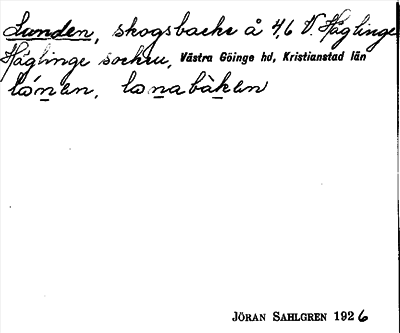 Lunden, skogsbacke å 4,6 V. Häglinge
Häglinge socken, Västra Göinge hd, Kristianstad län
lónen, lonabàken
JÖRAN SAHLGREN 1926